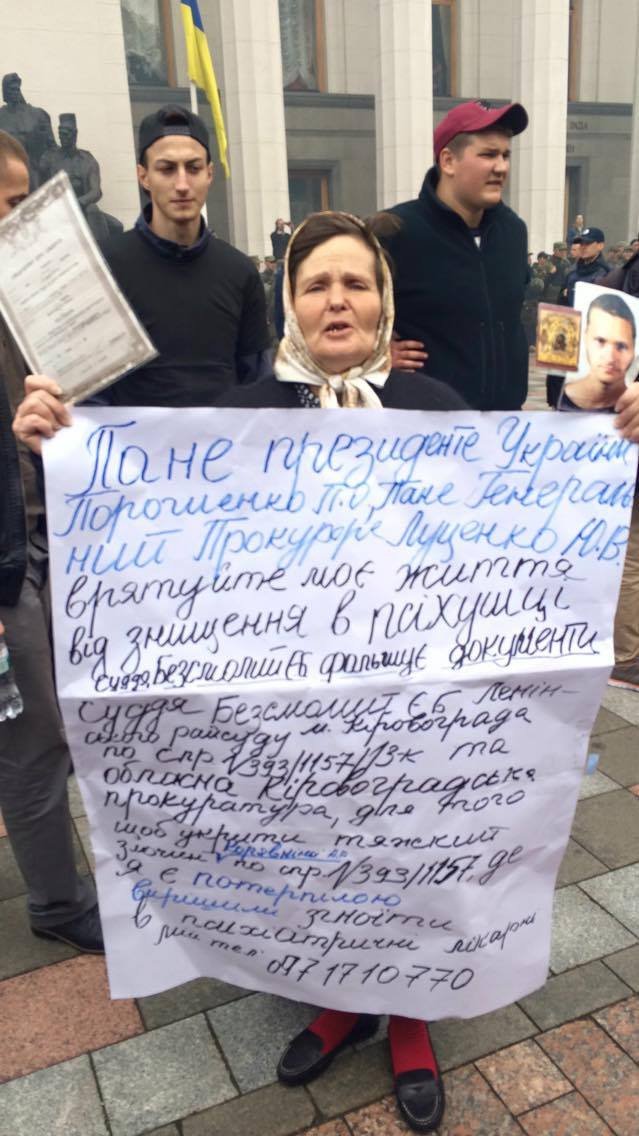 Пане президенте України
Порошенко П.О, Пане Генераль
ний Прокуроре Луценко Ю.В.
врятуйте моє життя
від знищення в психушці
суддя Безсмолий ЄБ фальшує документи
суддя Безсмолий ЄБ Ленін-
ського райсуду м. Кіровограда
по спр. 1/393/1157/13к та
обласна Кіровоградська
прокуратура, для того
щоб укрити тяжкий
злочин по спр. 1/393/1157. де
я є потерпілою
вирішили згноїти
в психіатричні лікарні
мій тел. 0971710770